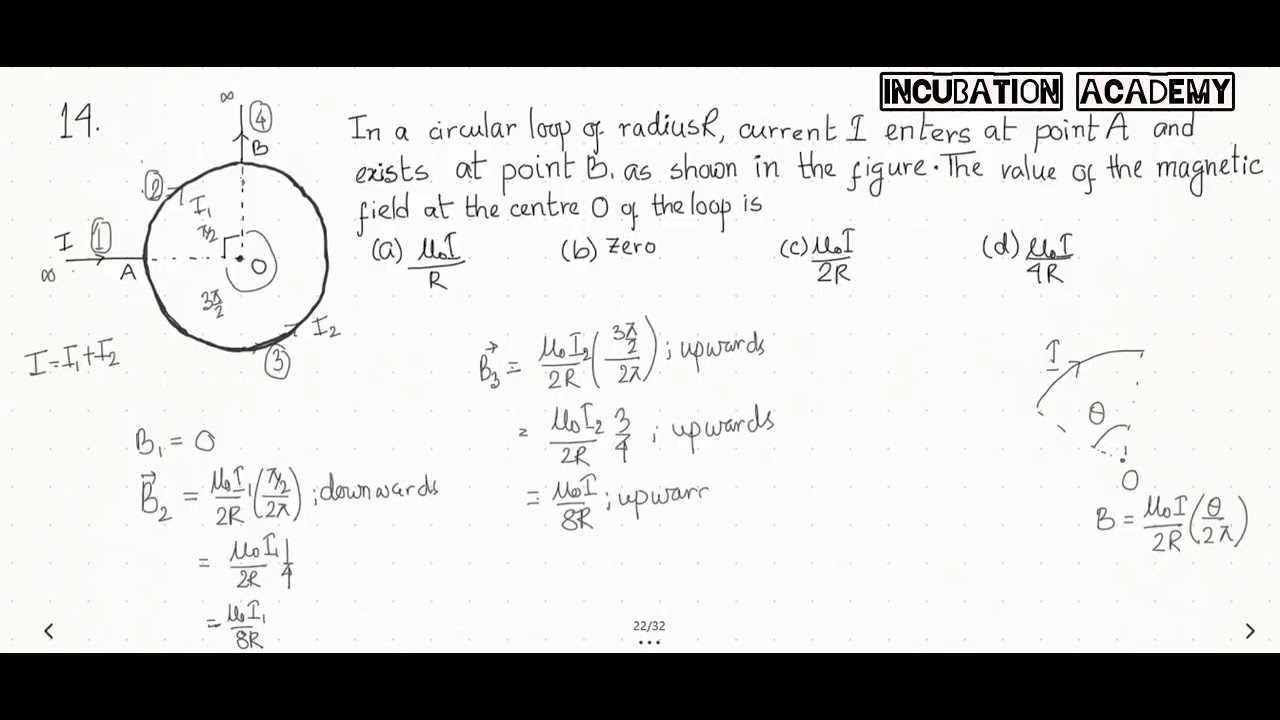 INCUBATION ACADEMY
14.
In a circular loop of radius R, current I enters at point A and
exists at point B, as shown in the figure. The value of the magnetic
field at the centre O of the loop is
(a) μ₀I/R (b) zero (c) μ₀I/2R (d) μ₀I/4R
∞ 4
B
2 I₁
π/2
I 1
∞ A O
3π/2
I₂
3
I = I₁ + I₂
B₁ = 0
B⃗₂ = μ₀I₁/2R (π/2/2π) ; downwards
= μ₀I₁/2R 1/4
= μ₀I₁/8R
B⃗₃ = μ₀I₂/2R (3π/2/2π) ; upwards
= μ₀I₂/2R 3/4 ; upwards
= μ₀I/8R ; upwarr
I
θ
O
B = μ₀I/2R (θ/2π)
22/32